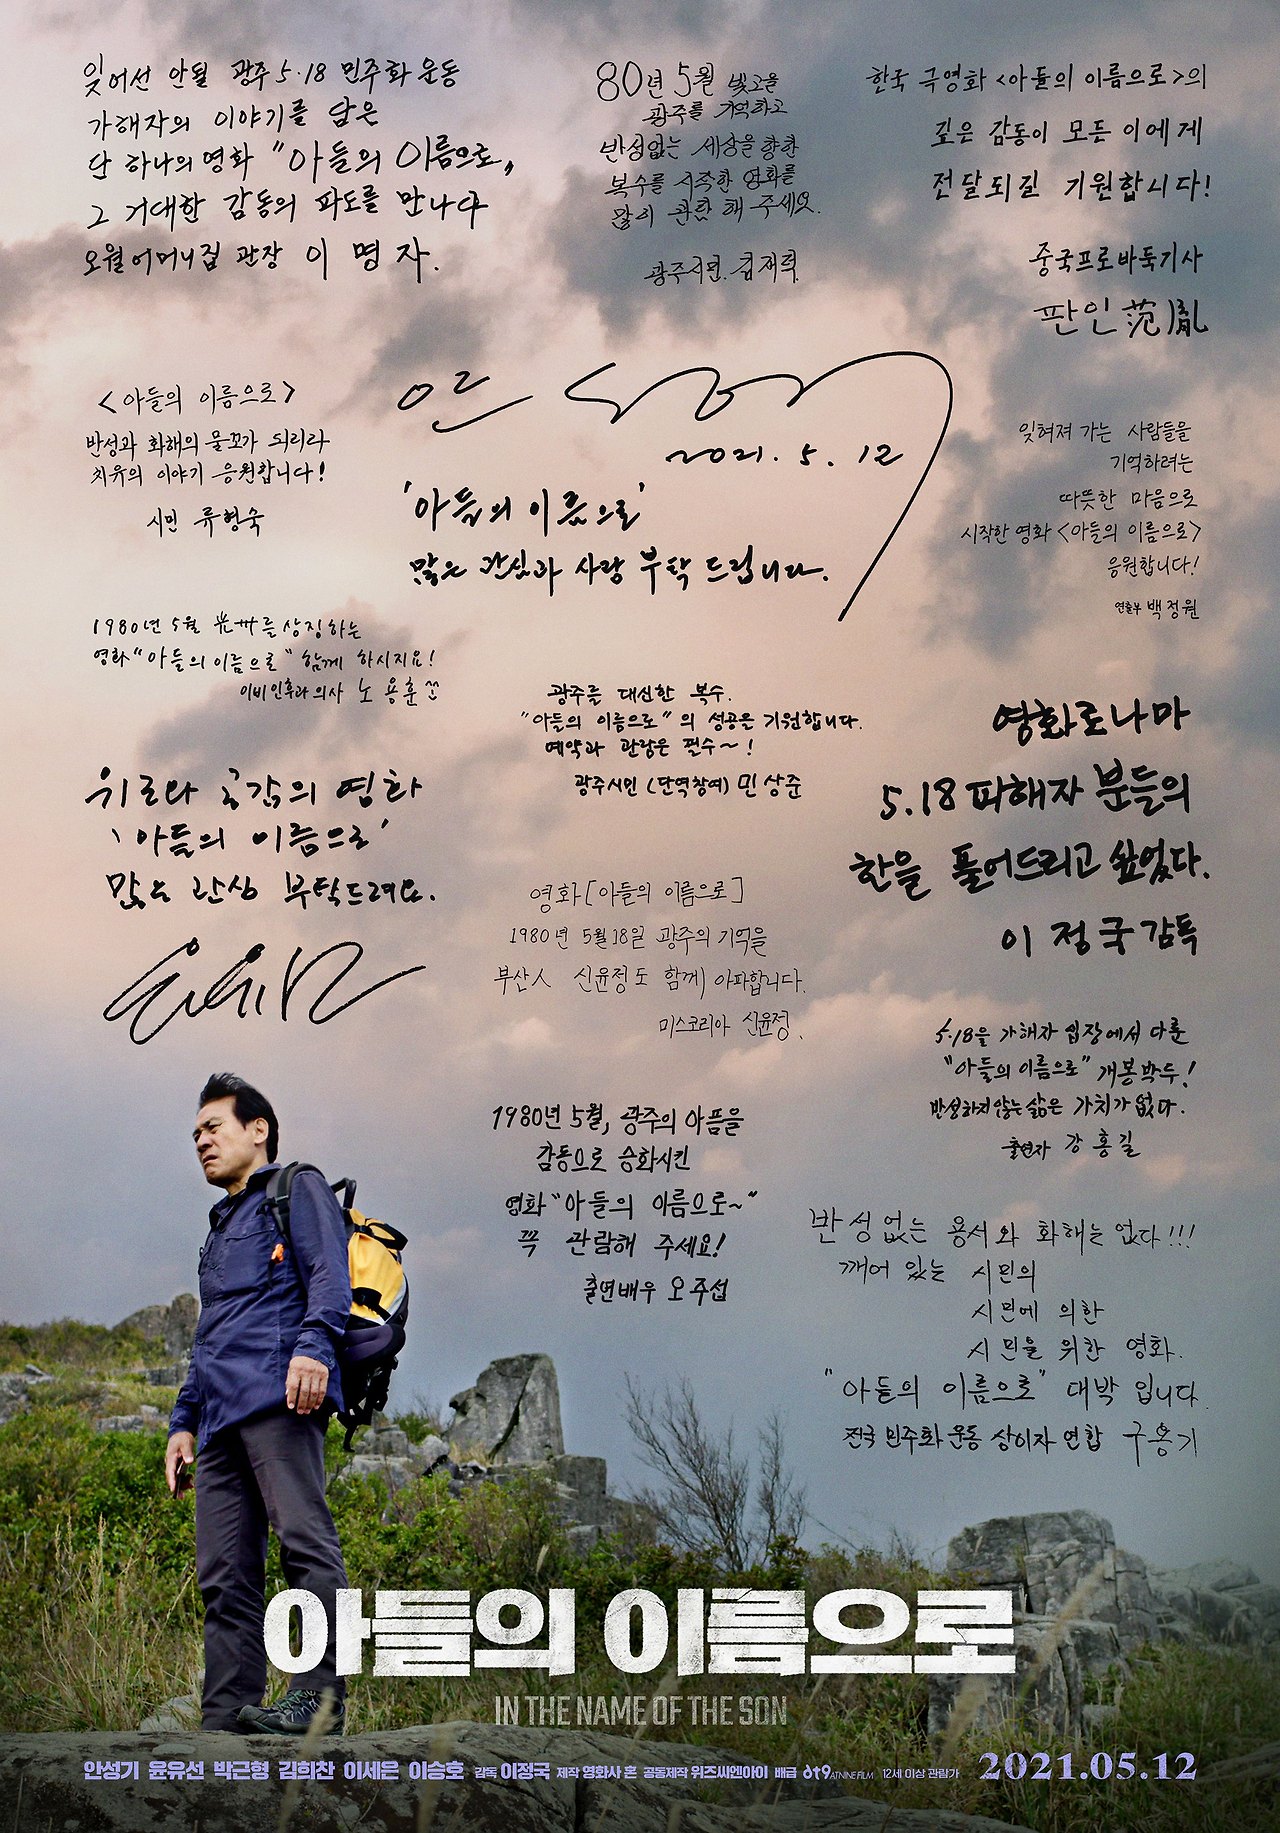 잊어선 안될 광주 5·18 민주화 운동
가해자의 이야기를 담은
단 하나의 영화 "아들의 이름으로,,
그 거대한 감동의 파도를 만나다
오월어머니집 관장 이 명 자.
80년 5월 빛고을
광주를 기억하고
반성없는 세상을 향한
복수를 시작한 영화를
많이 관람 해 주세요.
광주시민 김재력.
한국 극영화 <아들의 이름으로>의
깊은 감동이 모든 이에게
전달되길 기원합니다!
중국프로바둑기사
판인 范胤
<아들의 이름으로>
반성과 화해의 물꼬가 되리라
치유의 이야기 응원합니다!
시민 류형숙
안
2021. 5. 12
'아들의 이름으로'
많은 관심과 사랑 부탁 드립니다.
잊혀져 가는 사람들을
기억하려는
따뜻한 마음으로
시작한 영화 <아들의 이름으로>
응원합니다!
연출부 백정원
1980년 5월 光州를 상징하는
영화 "아들의 이름으로" 함께 하시지요!
이비인후과의사 노 용훈
광주를 대신한 복수.
"아들의 이름으로"의 성공을 기원합니다.
예약과 관람은 필수~!
광주시민 (단역참여) 민 상준
영화로나마
5.18 피해자 분들의
한을 풀어드리고 싶었다.
이 정국 감독
위로와 공감의 영화
'아들의 이름으로'
많은 관심 부탁드려요.
영화 [아들의 이름으로]
1980년 5월18일 광주의 기억을
부산人 신윤정도 함께 아파합니다.
미스코리아 신윤정.
5·18을 가해자 입장에서 다룬
"아들의 이름으로" 개봉박두!
반성하지않는 삶은 가치가 없다.
출연자 강 홍길
1980년 5월, 광주의 아픔을
감동으로 승화시킨
영화 "아들의 이름으로~"
꼭 관람해 주세요!
출연배우 오주섭
반성없는 용서와 화해는 없다!!!
깨어 있는 시민의
시민에 의한
시민을 위한 영화.
"아들의 이름으로" 대박 입니다.
전국 민주화 운동 상이자 연합 구용기
아들의 이름으로
IN THE NAME OF THE SON
안성기 윤유선 박근형 김희찬 이세은 이승호 감독 이정국 제작 영화사 혼 공동제작 위즈씨엔아이 배급 at9 AT NINE FILM 12세 이상 관람가 2021.05.12